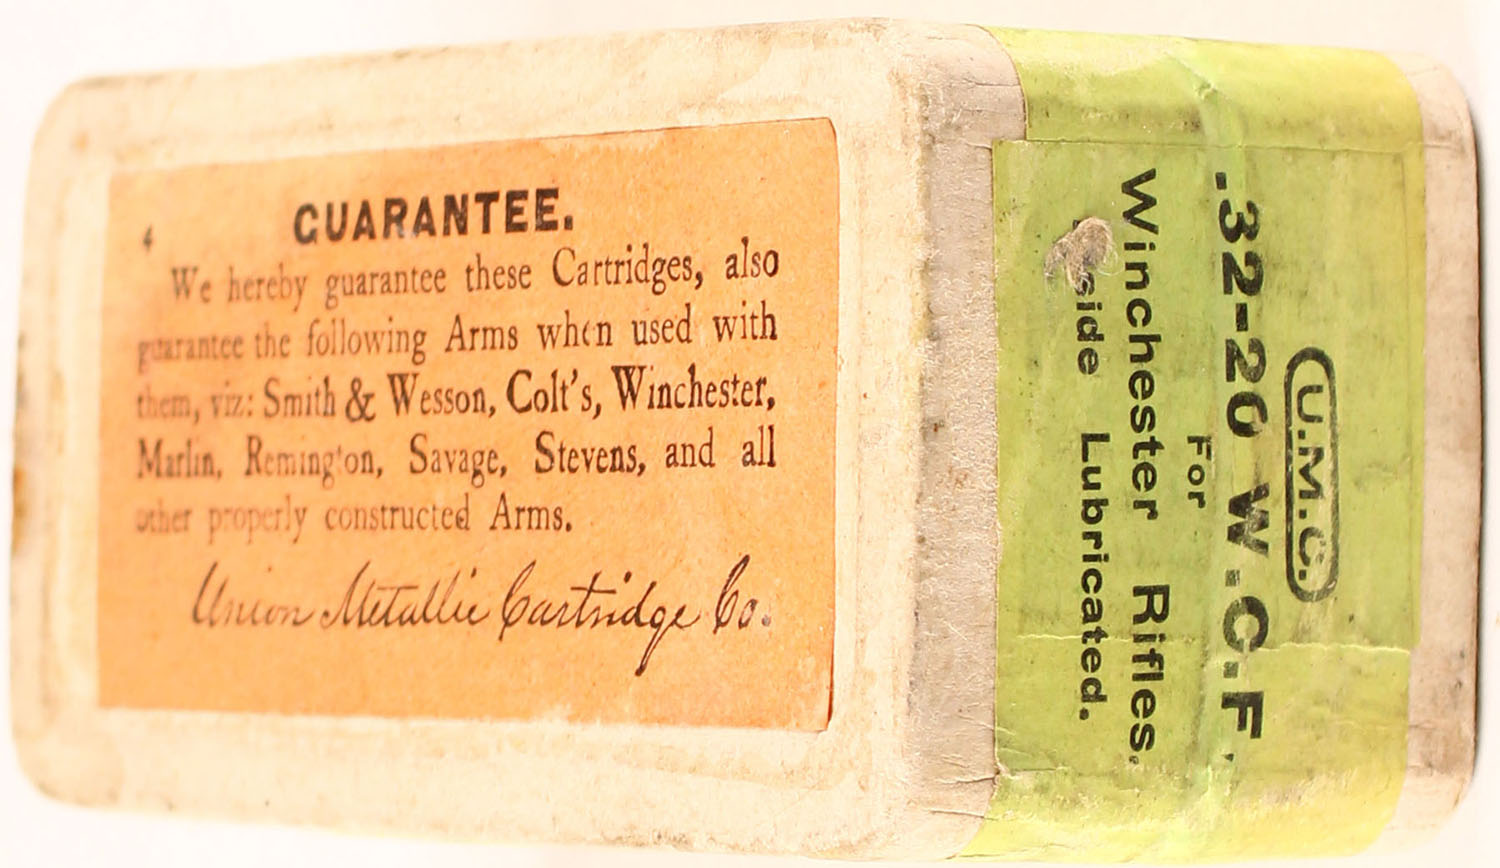 4
GUARANTEE.
We hereby guarantee these Cartridges, also
guarantee the following Arms when used with
them, viz: Smith & Wesson, Colt's, Winchester,
Marlin, Remington, Savage, Stevens, and all
other properly constructed Arms.
Union Metallic Cartridge Co.
U.M.C.
.32-20 W.C.F.
For
Winchester Rifles.
Lubricated.